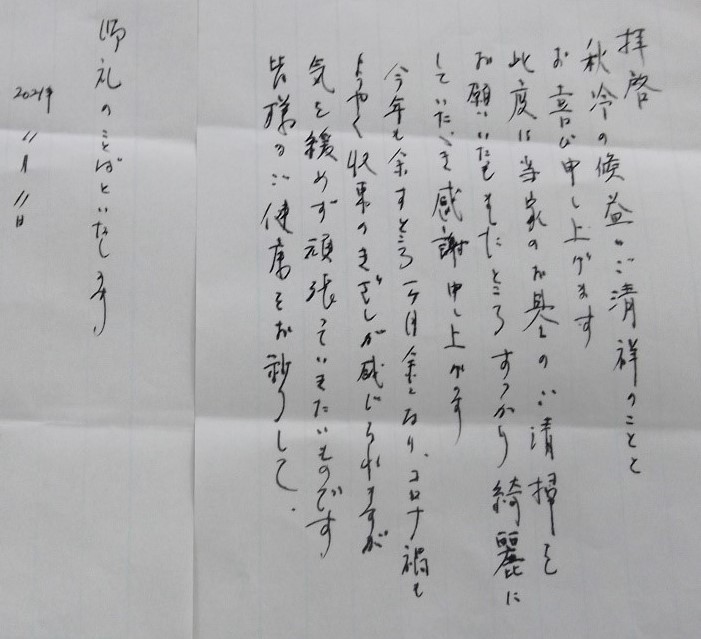 拝啓
秋冷の候益々ご清祥のことと
お喜び申し上げます
此度は当家のお墓のご清掃を
お願いいたしましたところすっかり綺麗に
していただき感謝申し上げます
今年も余すところ一ヶ月余となり、コロナ禍も
ようやく収束のきざしが感じられますが
気を緩めず頑張っていきたいものです
皆様のご健康をお祈りして、
御礼のことばといたします
2021年
11月11日